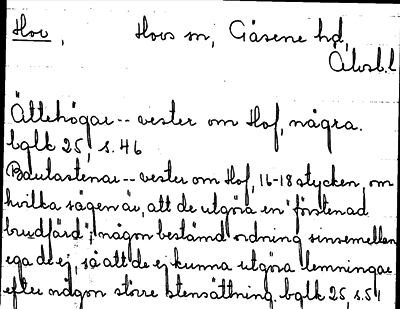 Hov, Hovs sn, Gäsene hd,
Älvsb.l
Ättehögar -- vester om Hof, några.
bglk 25, s. 46
Bautastenar -- vester om Hof, 16-18 stycken, om
hvilka sägen är, att de utgöra en "förstenad
brudfärd"; någon bestämd ordning sinsemellan
ega de ej, så att de ej kunna utgöra lemningar
efter någon större stensättning. bglk 25, s. 51